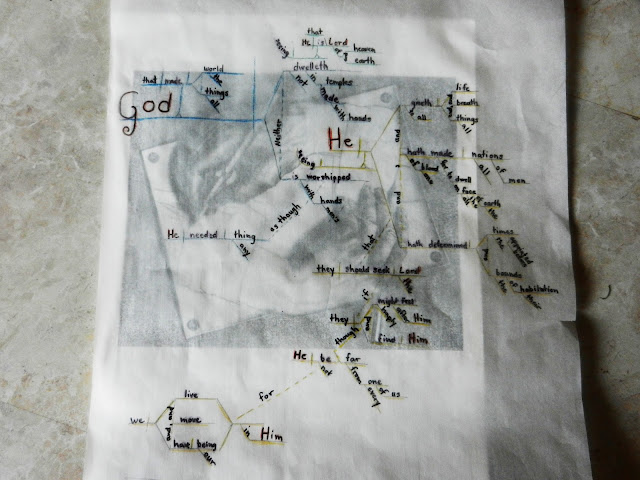 that
He is Lord
of heaven
and earth
seeing
dwelleth
not
in temples
made
with hands
that made world
the
things
all
God
Neither
He
being
is worshipped
with hands
men's
as though
He needed thing
any
giveth life
to all
and breath
and things
all
and
hath made nations
of blood
one
all
of men
for to dwell
on face
all
the
of earth
the
and
hath determined times
and bounds
the
of habitation
their
that
they should seek Lord
the
if
they might feel
haply
after Him
and
find Him
though
He be far
not
from one
every
of us
for
we live
and move
and have being
our
in Him